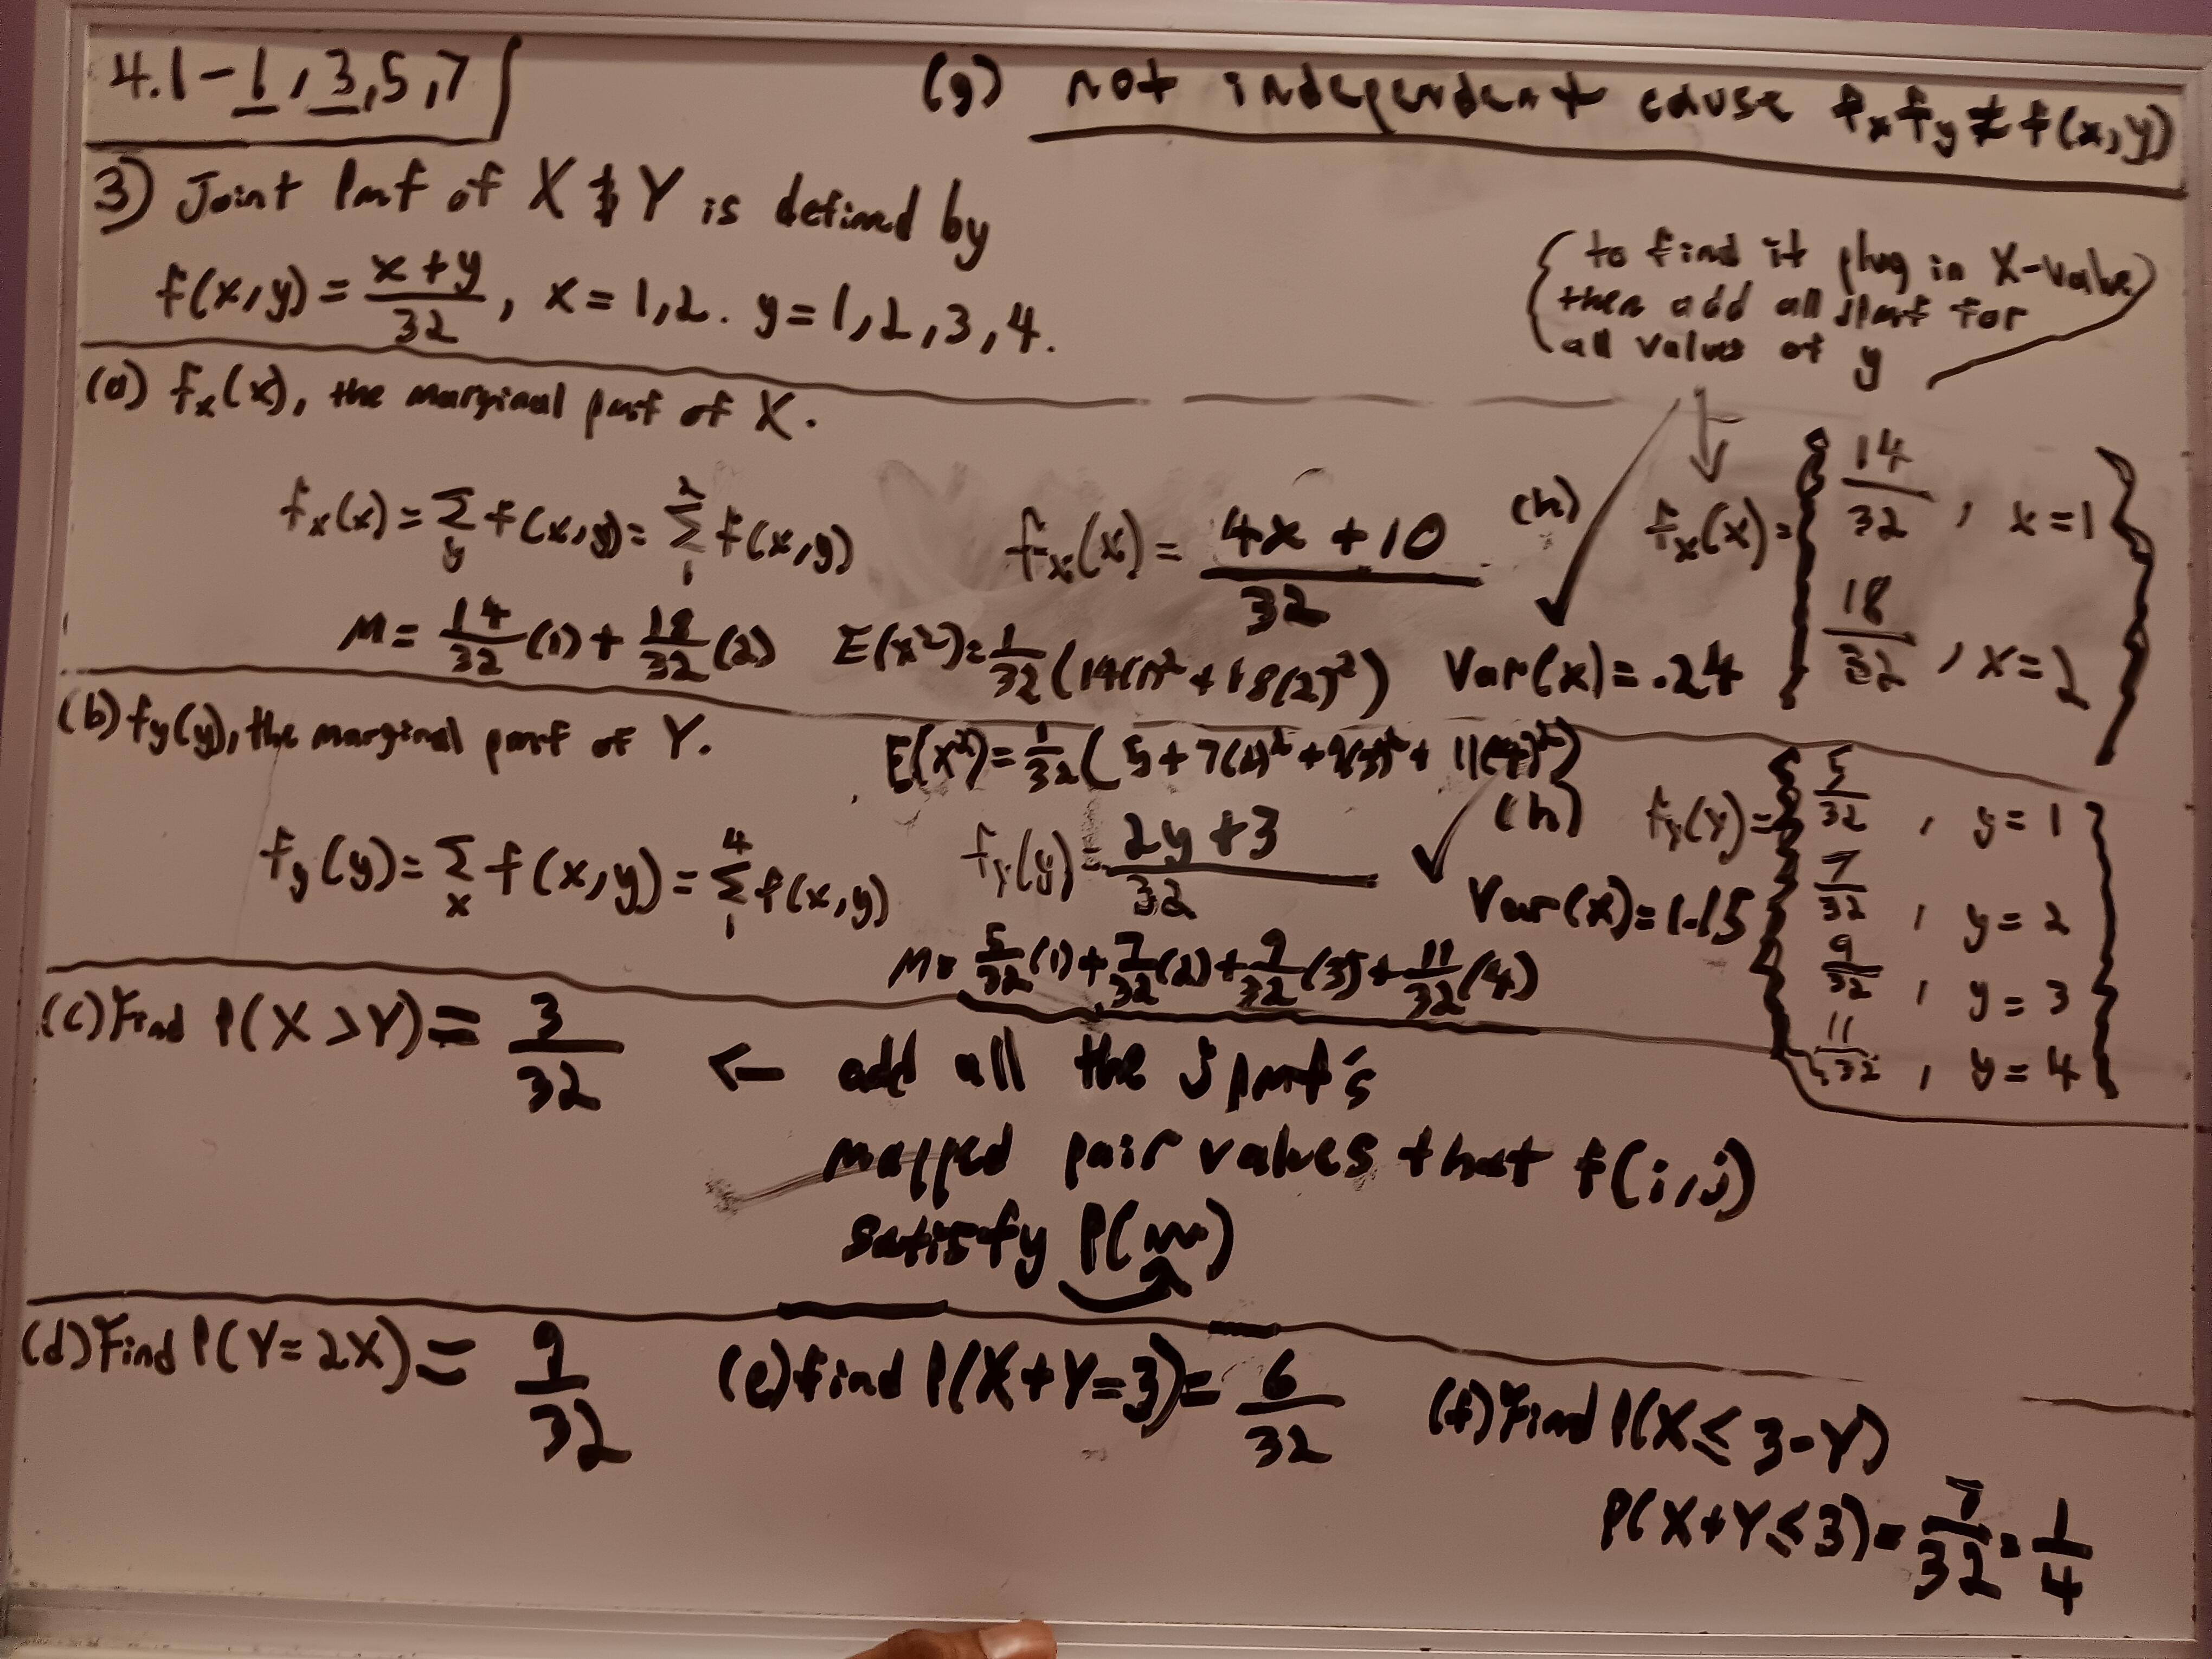 4.1-1,3,5,7
(g) not independent cause fxfy≠f(x,y)
3) Joint Pmf of X & Y is defined by
f(x,y) = x+y/32, x=1,2. y=1,2,3,4.
{to find it plug in X-value
then add all jpmf for
all values of y
(a) fx(x), the marginal pmf of X.
fx(x) = Σy f(x,y) = Σ f(x,y)
fx(x) = 4x+10/32
(h)
fx(x) = { 14/32, x=1
18/32, x=2 }
M = 14/32(1) + 18/32(2)
E(x²) = 1/32(14(1)²+18(2)²)
Var(x) = .24
(b) fy(y), the marginal pmf of Y.
E(x²) = 1/32(5+7(2)²+9(3)²+11(4)²)
fy(y) = Σx f(x,y) = Σ f(x,y)
fy(y) = 2y+3/32
(h)
Var(x) = 1.15
fy(y) = { 5/32, y=1
7/32, y=2
9/32, y=3
11/32, y=4 }
M = 5/32(1)+7/32(2)+9/32(3)+11/32(4)
(c) Find P(X>Y) = 3/32 ← add all the jpmf's
mapped pair values that f(i,j)
satisfy P(    )
(d) Find P(Y=2X) = 9/32
(e) find P(X+Y=3) = 6/32
(f) Find P(X≤3-Y)
P(X+Y≤3) = 7/32 = 1/4